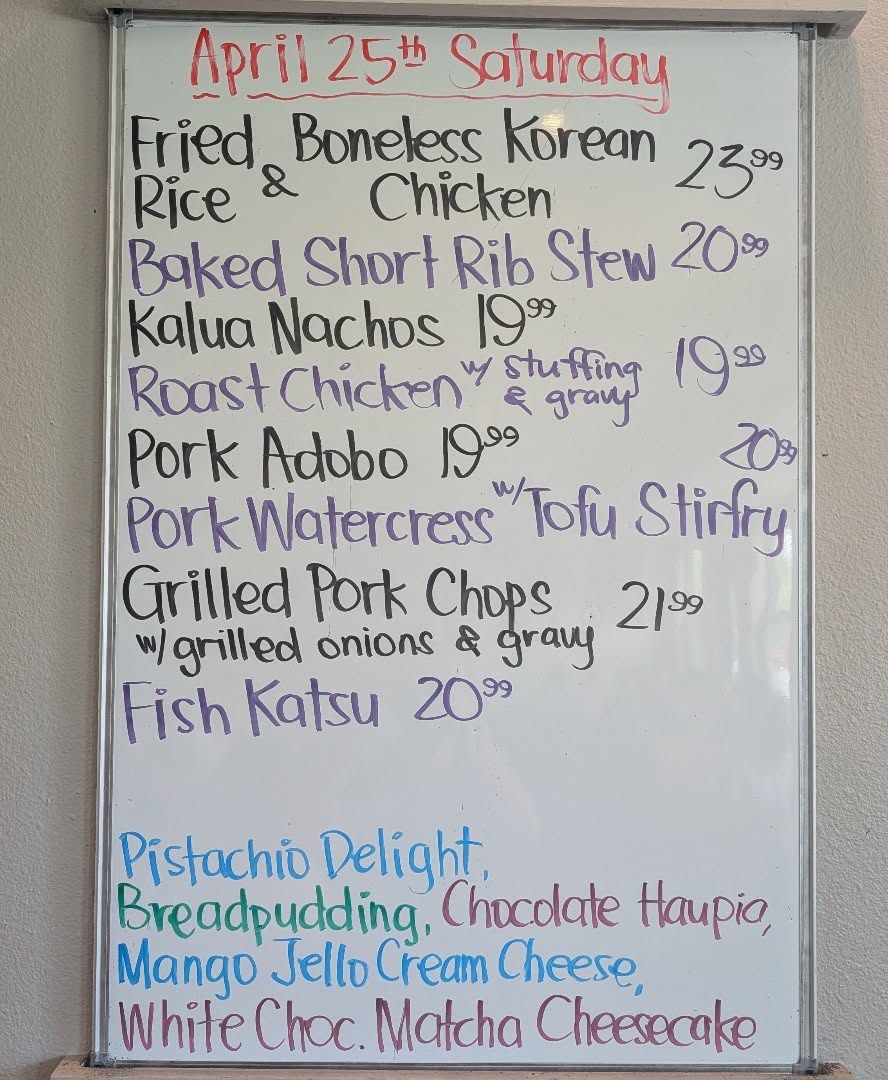 April 25th Saturday
Fried Rice & Boneless Korean Chicken 23.99
Baked Short Rib Stew 20.99
Kalua Nachos 19.99
Roast Chicken w/ stuffing & gravy 19.99
Pork Adobo 19.99
Pork Watercress w/ Tofu Stirfry 20.99
Grilled Pork Chops 21.99
w/ grilled onions & gravy
Fish Katsu 20.99
Pistachio Delight,
Breadpudding, Chocolate Haupia,
Mango Jello Cream Cheese,
White Choc. Matcha Cheesecake